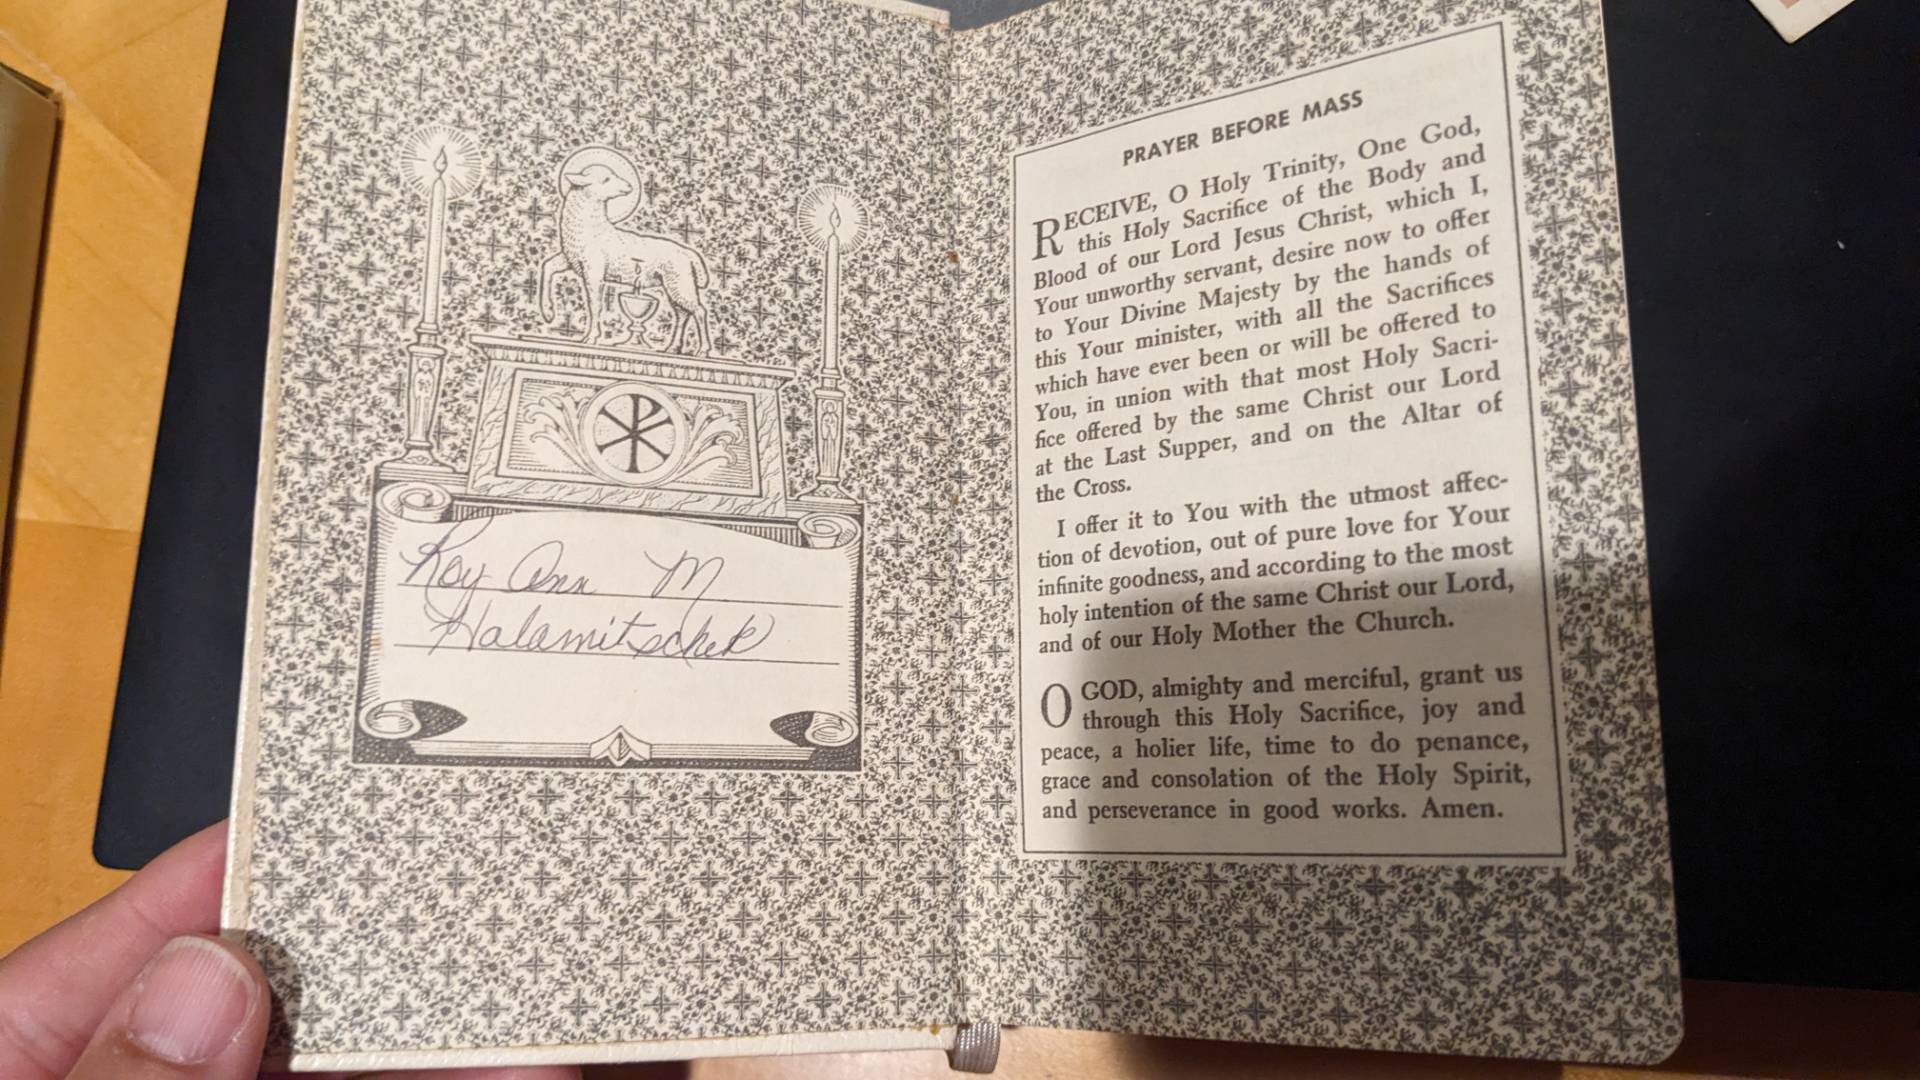 Roy Ann M
Halamitschek
PRAYER BEFORE MASS
RECEIVE, O Holy Trinity, One God,
this Holy Sacrifice of the Body and
Blood of our Lord Jesus Christ, which I,
Your unworthy servant, desire now to offer
to Your Divine Majesty by the hands of
this Your minister, with all the Sacrifices
which have ever been or will be offered to
You, in union with that most Holy Sacri-
fice offered by the same Christ our Lord
at the Last Supper, and on the Altar of
the Cross.
I offer it to You with the utmost affec-
tion of devotion, out of pure love for Your
infinite goodness, and according to the most
holy intention of the same Christ our Lord,
and of our Holy Mother the Church.
O GOD, almighty and merciful, grant us
through this Holy Sacrifice, joy and
peace, a holier life, time to do penance,
grace and consolation of the Holy Spirit,
and perseverance in good works. Amen.